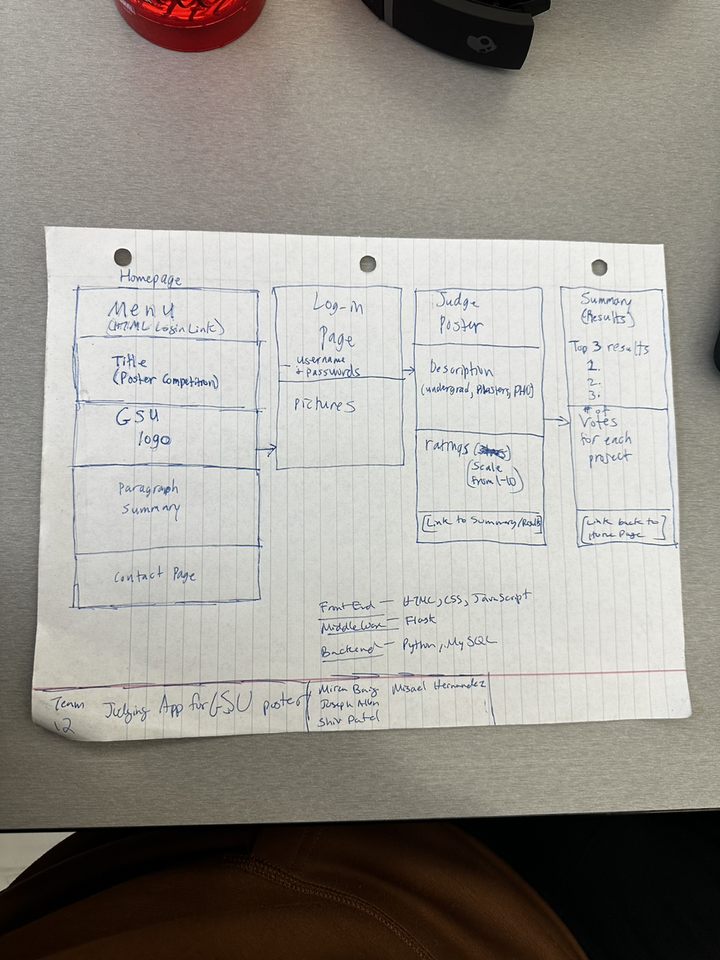 Homepage
Menu
(HTML Login Link)
Title
(Poster Competition)
GSU
logo
Paragraph
Summary
Contact Page
Log-in
Page
- username
+ passwords
Pictures
Judge
Poster
Description
(undergrad, Masters, PHD)
ratings
(Scale
from 1-10)
[Link to Summary/Results]
Summary
(Results)
Top 3 results
1.
2.
3.
# of
Votes
for each
project
[Link back to
Home Page]
Front End - HTML, CSS, JavaScript
Middleware - Flask
Backend - Python, MySQL
Team
12
Judging App for GSU posters
Miren Baig Misael Hernandez
Joseph Allen
Shiv Patel